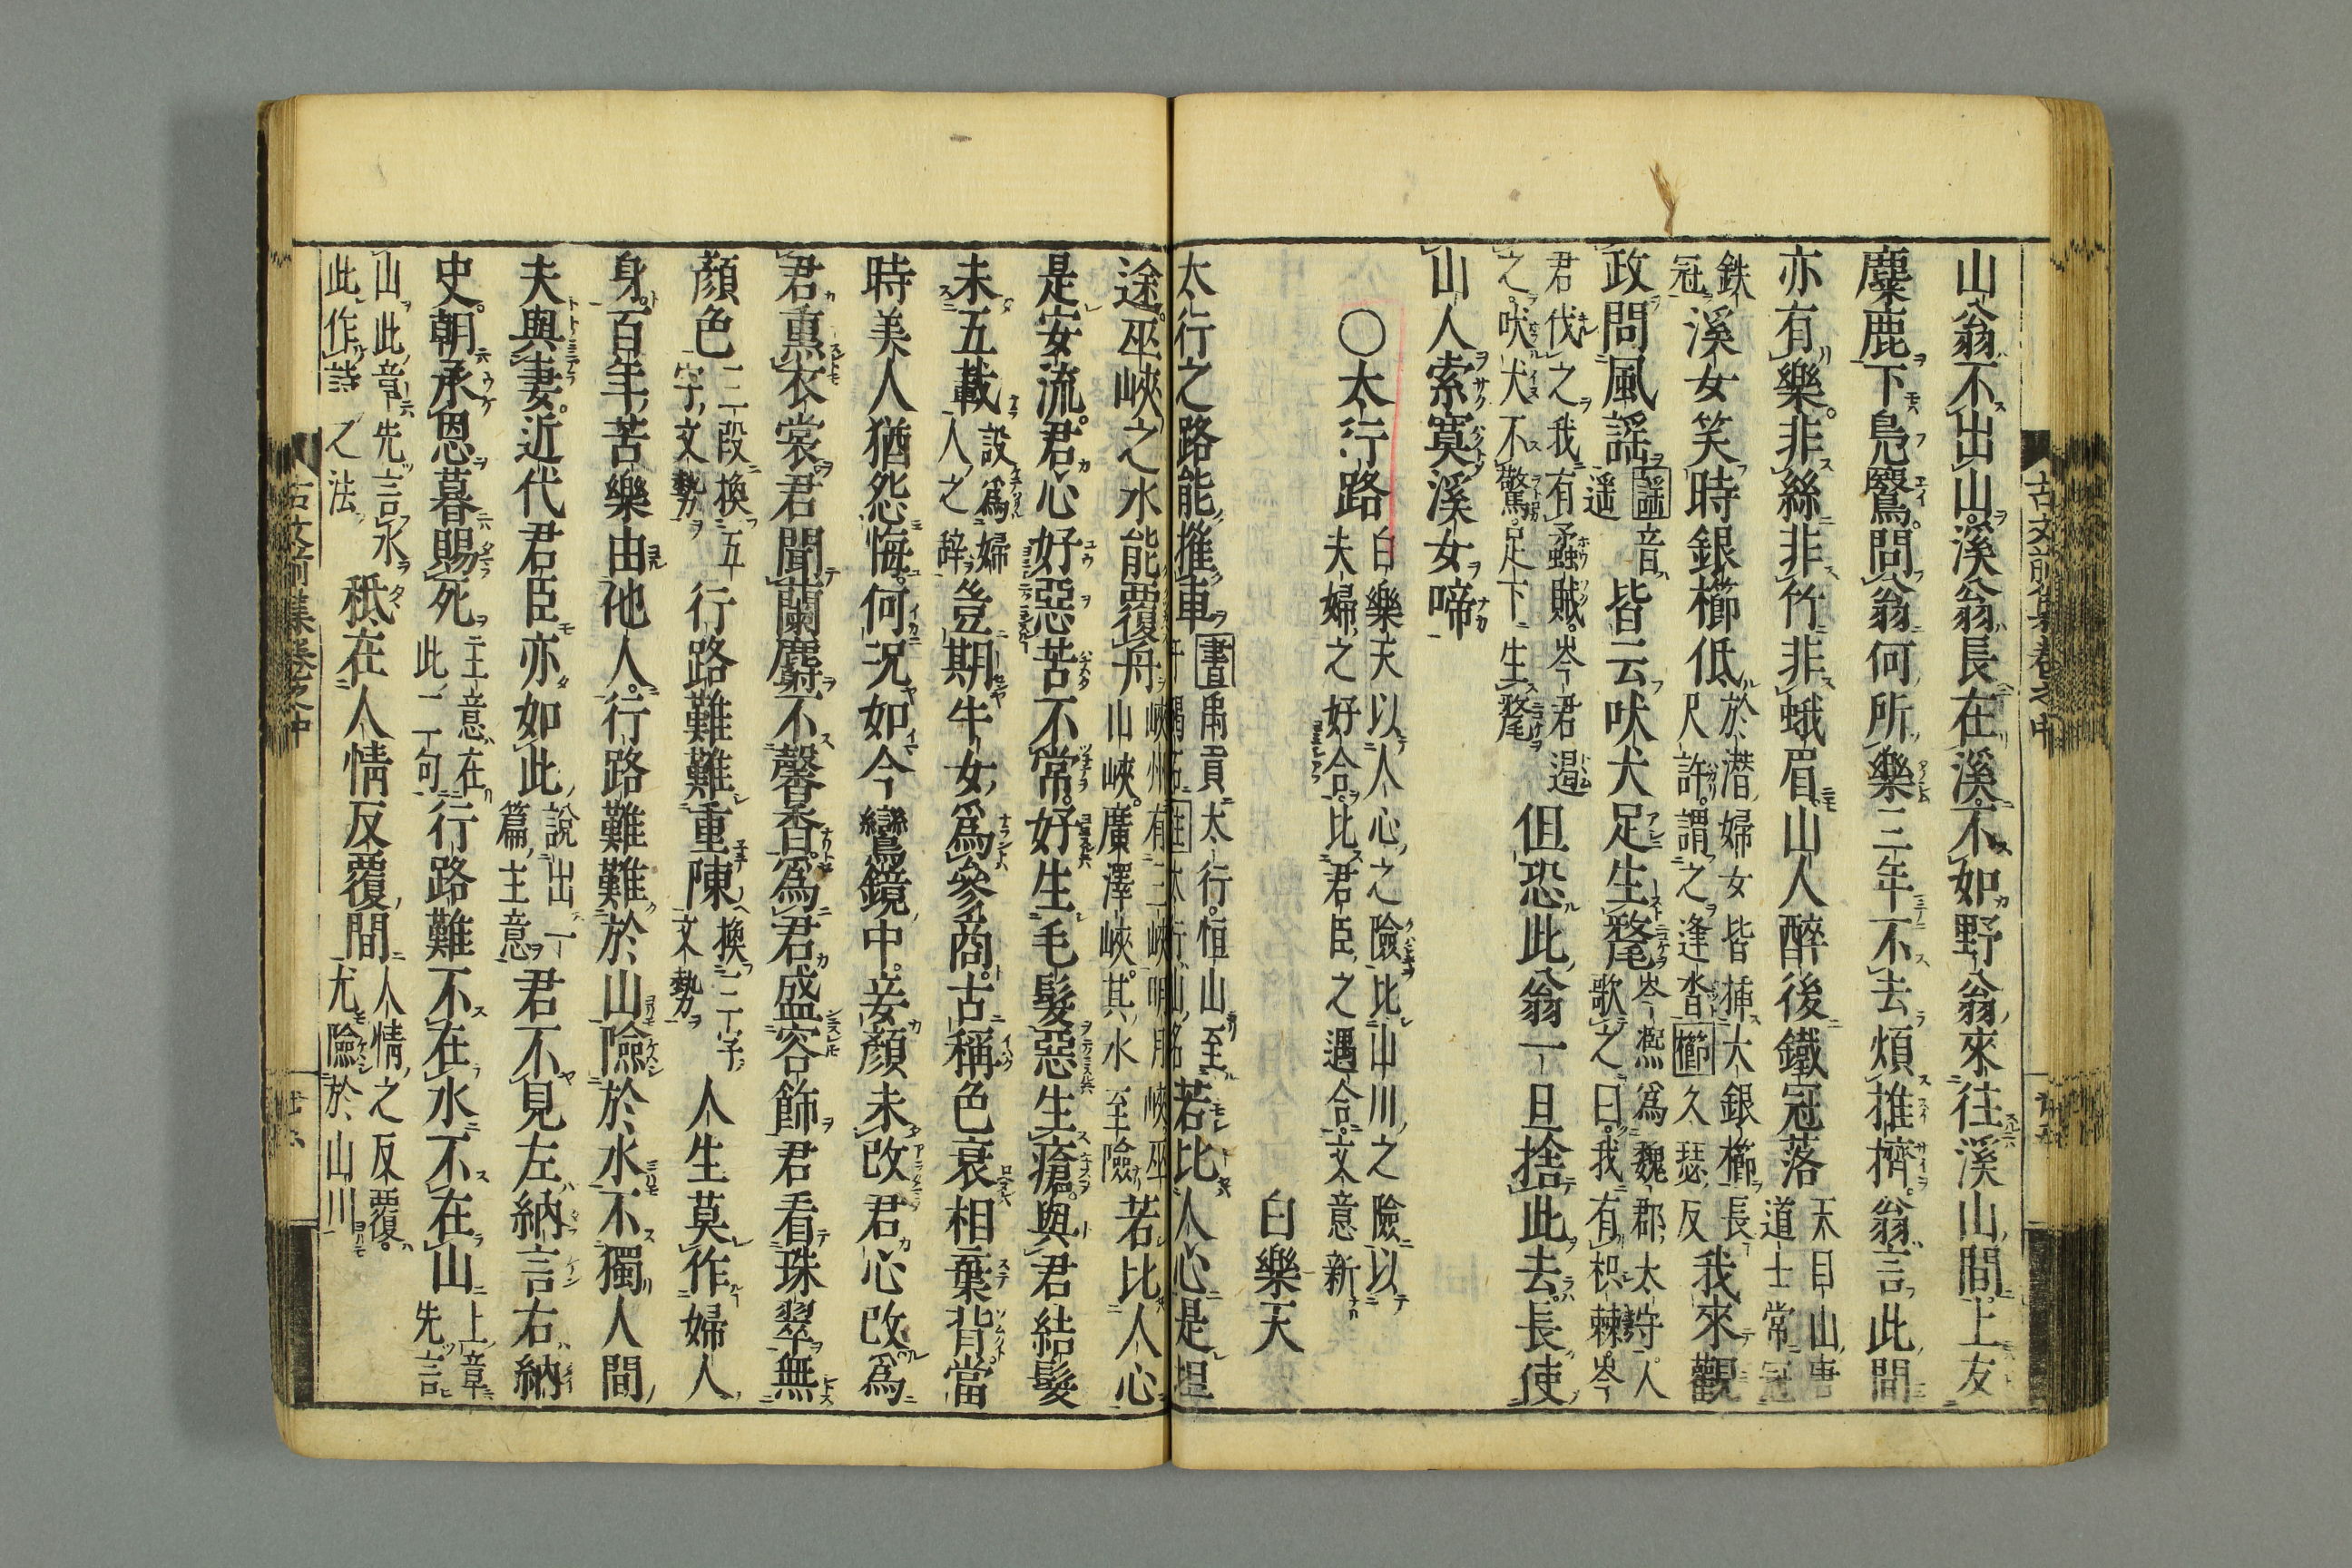 山翁不出山溪翁長在溪不如野翁來往溪山間上友
麋鹿下鳧鷖問翁何所樂三年不去煩推擠翁言此間
亦有樂非絲非竹非蛾眉山人醉後鐵冠落
天目山唐
道士常冠
鉄
冠
溪女笑時銀櫛低
於潛婦女皆揷大銀櫛長
尺許謂之逢沓櫛久瑟反
我來觀
政問風謠
謡音
遥
皆云吠犬足生氂
岑凞爲魏郡太守人
歌之曰我有枳棘岑
君伐之我有蟊賊岑君遏
之吠犬不驚足下生氂
但恐此翁一旦捨此去長使
山人索寞溪女啼
○太行路
白樂天以人心之險比山川之險以
夫婦之好合比君臣之遇合文意新
白樂天
太行之路能摧車
書禹貢太行恒山至
若比人心是坦
途巫峽之水能覆舟
峽州有三峽明月峽巫
山峽廣澤峽其水至險
若比人心
是安流君心好惡苦不常好生毛髮惡生瘡與君結髮
未五載
設爲婦
人之辞
豈期牛女爲參商古稱色衰相棄背當
時美人猶怨悔何况如今鸞鏡中妾顏未改君心改爲
君熏衣裳君聞蘭麝不馨香爲君盛容飾君看珠翠無
顏色
三段換五
字文勢
行路難難重陳
換三字
文勢
人生莫作婦人
身百年苦樂由他人行路難難於山險於水不獨人間
夫與妻近代君臣亦如此
說出一
篇主意
君不見左納言右納
史朝承恩暮賜死
主意在
此二句
行路難不在水不在山
上章
先言
山此章先言水
此作詩之法
秪在人情反覆間
人情之反覆
尤險於山川
古文前集卷之中
古文前集卷之中